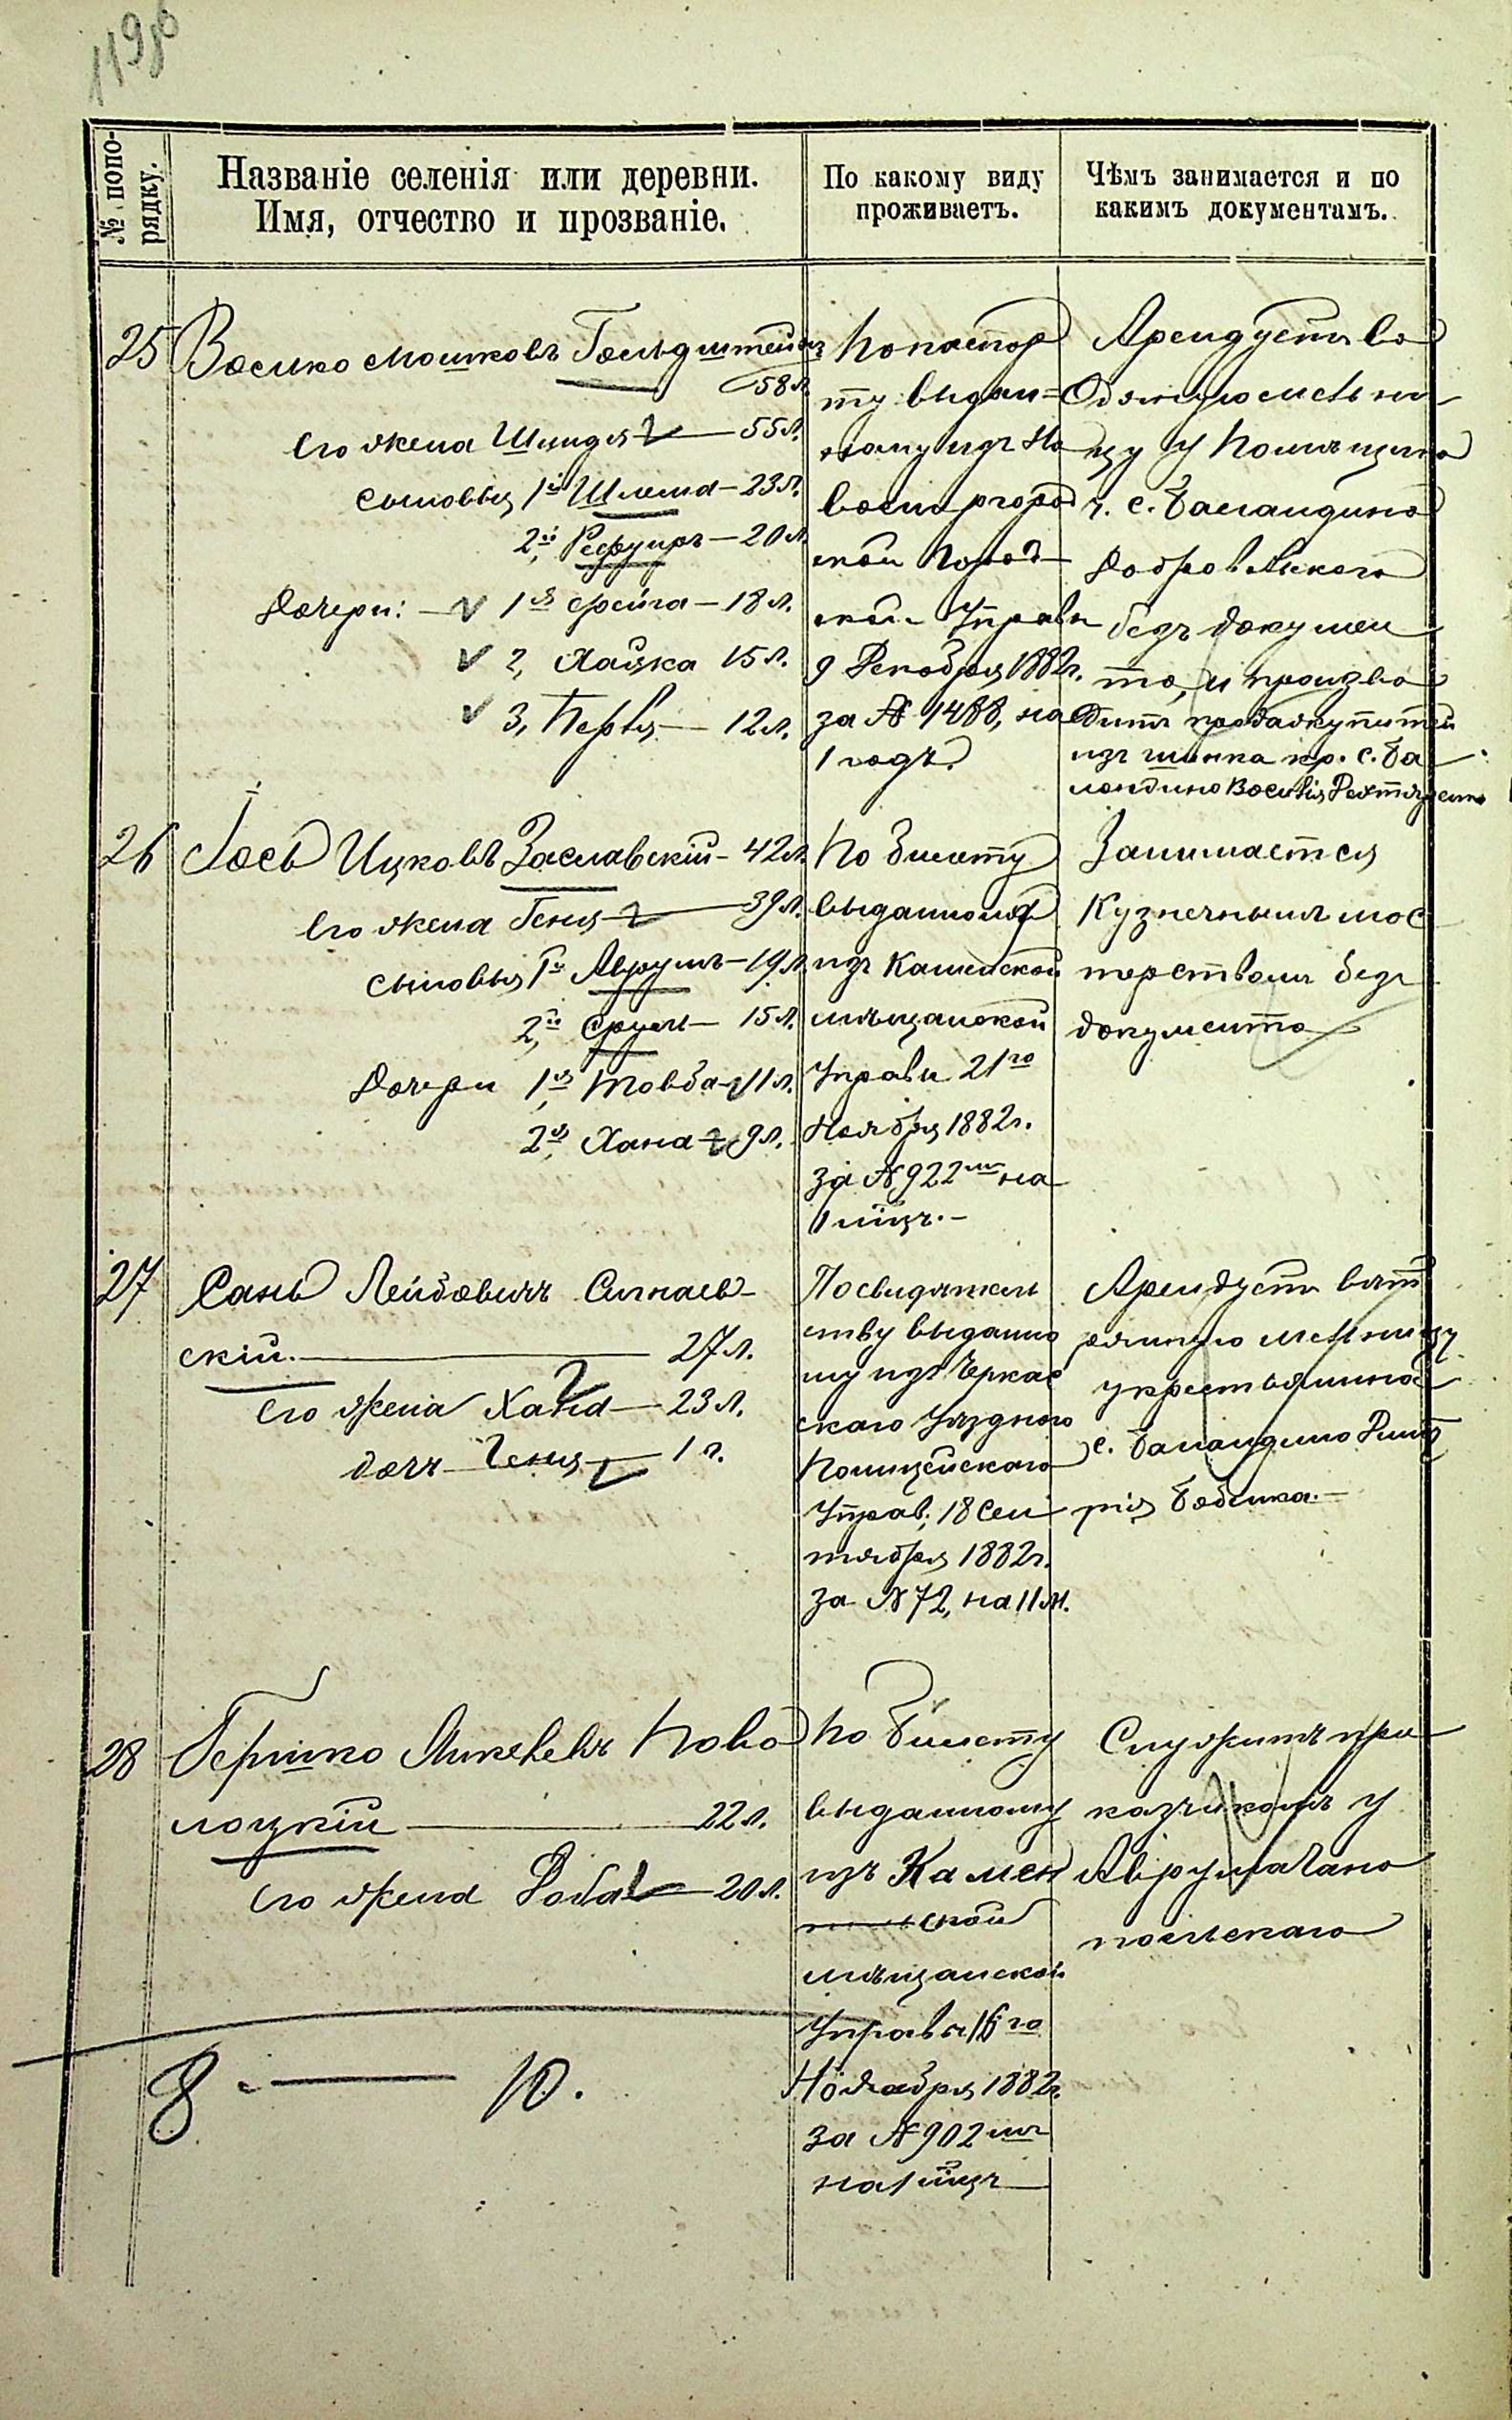 119об
№ попо-
рядку.
Названіе селенія или деревни.
Имя, отчество и прозваніе.
По какому виду
проживаетъ.
Чѣмъ занимается и по
какимъ документамъ.
25
Мошковъ Гольдштейнъ
58 л.
Его жена Шинделя — 55 л.
сыновья 1й Шлема — 23 л.
2й, — 20 л.
Дочери: — 1я Фрейга — 18 л.
2, Хайка 15 л.
3, Перля — 12 л.
По паспор
ту выдан=
ному изъ Но
городской
Управы
9 Декабря 1882 г.
за № 1488, на
1 годъ.
Арендуетъ во
дяную мельни
цу у помѣщика
с. Баландина
Добровльского
безъ докумен
та, и произво
дитъ
изъ шинка кр. с. Ба
ландино
26
Іось Ицковъ Заславскій — 42 л.
Его жена Геня — 39 л.
сыновья 1й Аврумъ — 19 л.
2й, Сруль — 15 л.
Дочери 1я, Товба — 11 л.
2я, Хана — 9 л.
По билету
выданному
изъ Каменской
мѣщанской
Управы 21го
Ноября 1882 г.
за № 922мъ на
1 мсцъ. —
Занимается
Кузнечнымъ мос
терствомъ безъ
документа
27
Лейбовичъ Сигнаев-
скій. — 27 л.
Его жена Хана — 23 л.
дочь Геня — 1 г.
По свидѣтель
ству выданно
му изъ Черкас
скаго Уѣзднаго
Полицейскаго
Управ; 18 Сен
тября 1882 г.
за № 72, на 11 м.
Арендуетъ вѣт
рянную мельницу
у крестьянина
с. Баландино Дмит
рія Бабенка. —
28
Гершко Янкелевъ Пово
лоцкій — 22 л.
Его жена Доба — 20 л.
По билету
выданному
изъ Камен
ской
мѣщанской
Управы 16го
Ноября 1882 г.
за № 902мъ
на 1 мсцъ —
Служитъ при
казчикомъ у
Аврума Гано
польскаго
8 — 10.